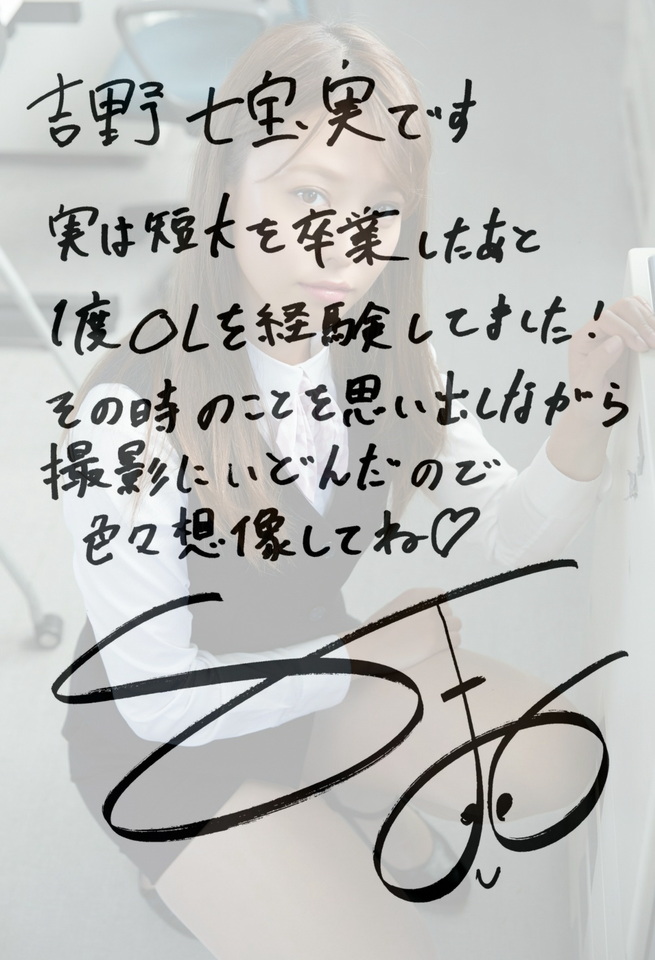 吉野七宝実です
実は短大を卒業したあと
1度OLを経験してました!
その時のことを思い出しながら
撮影にいどんだので
色々想像してね♡